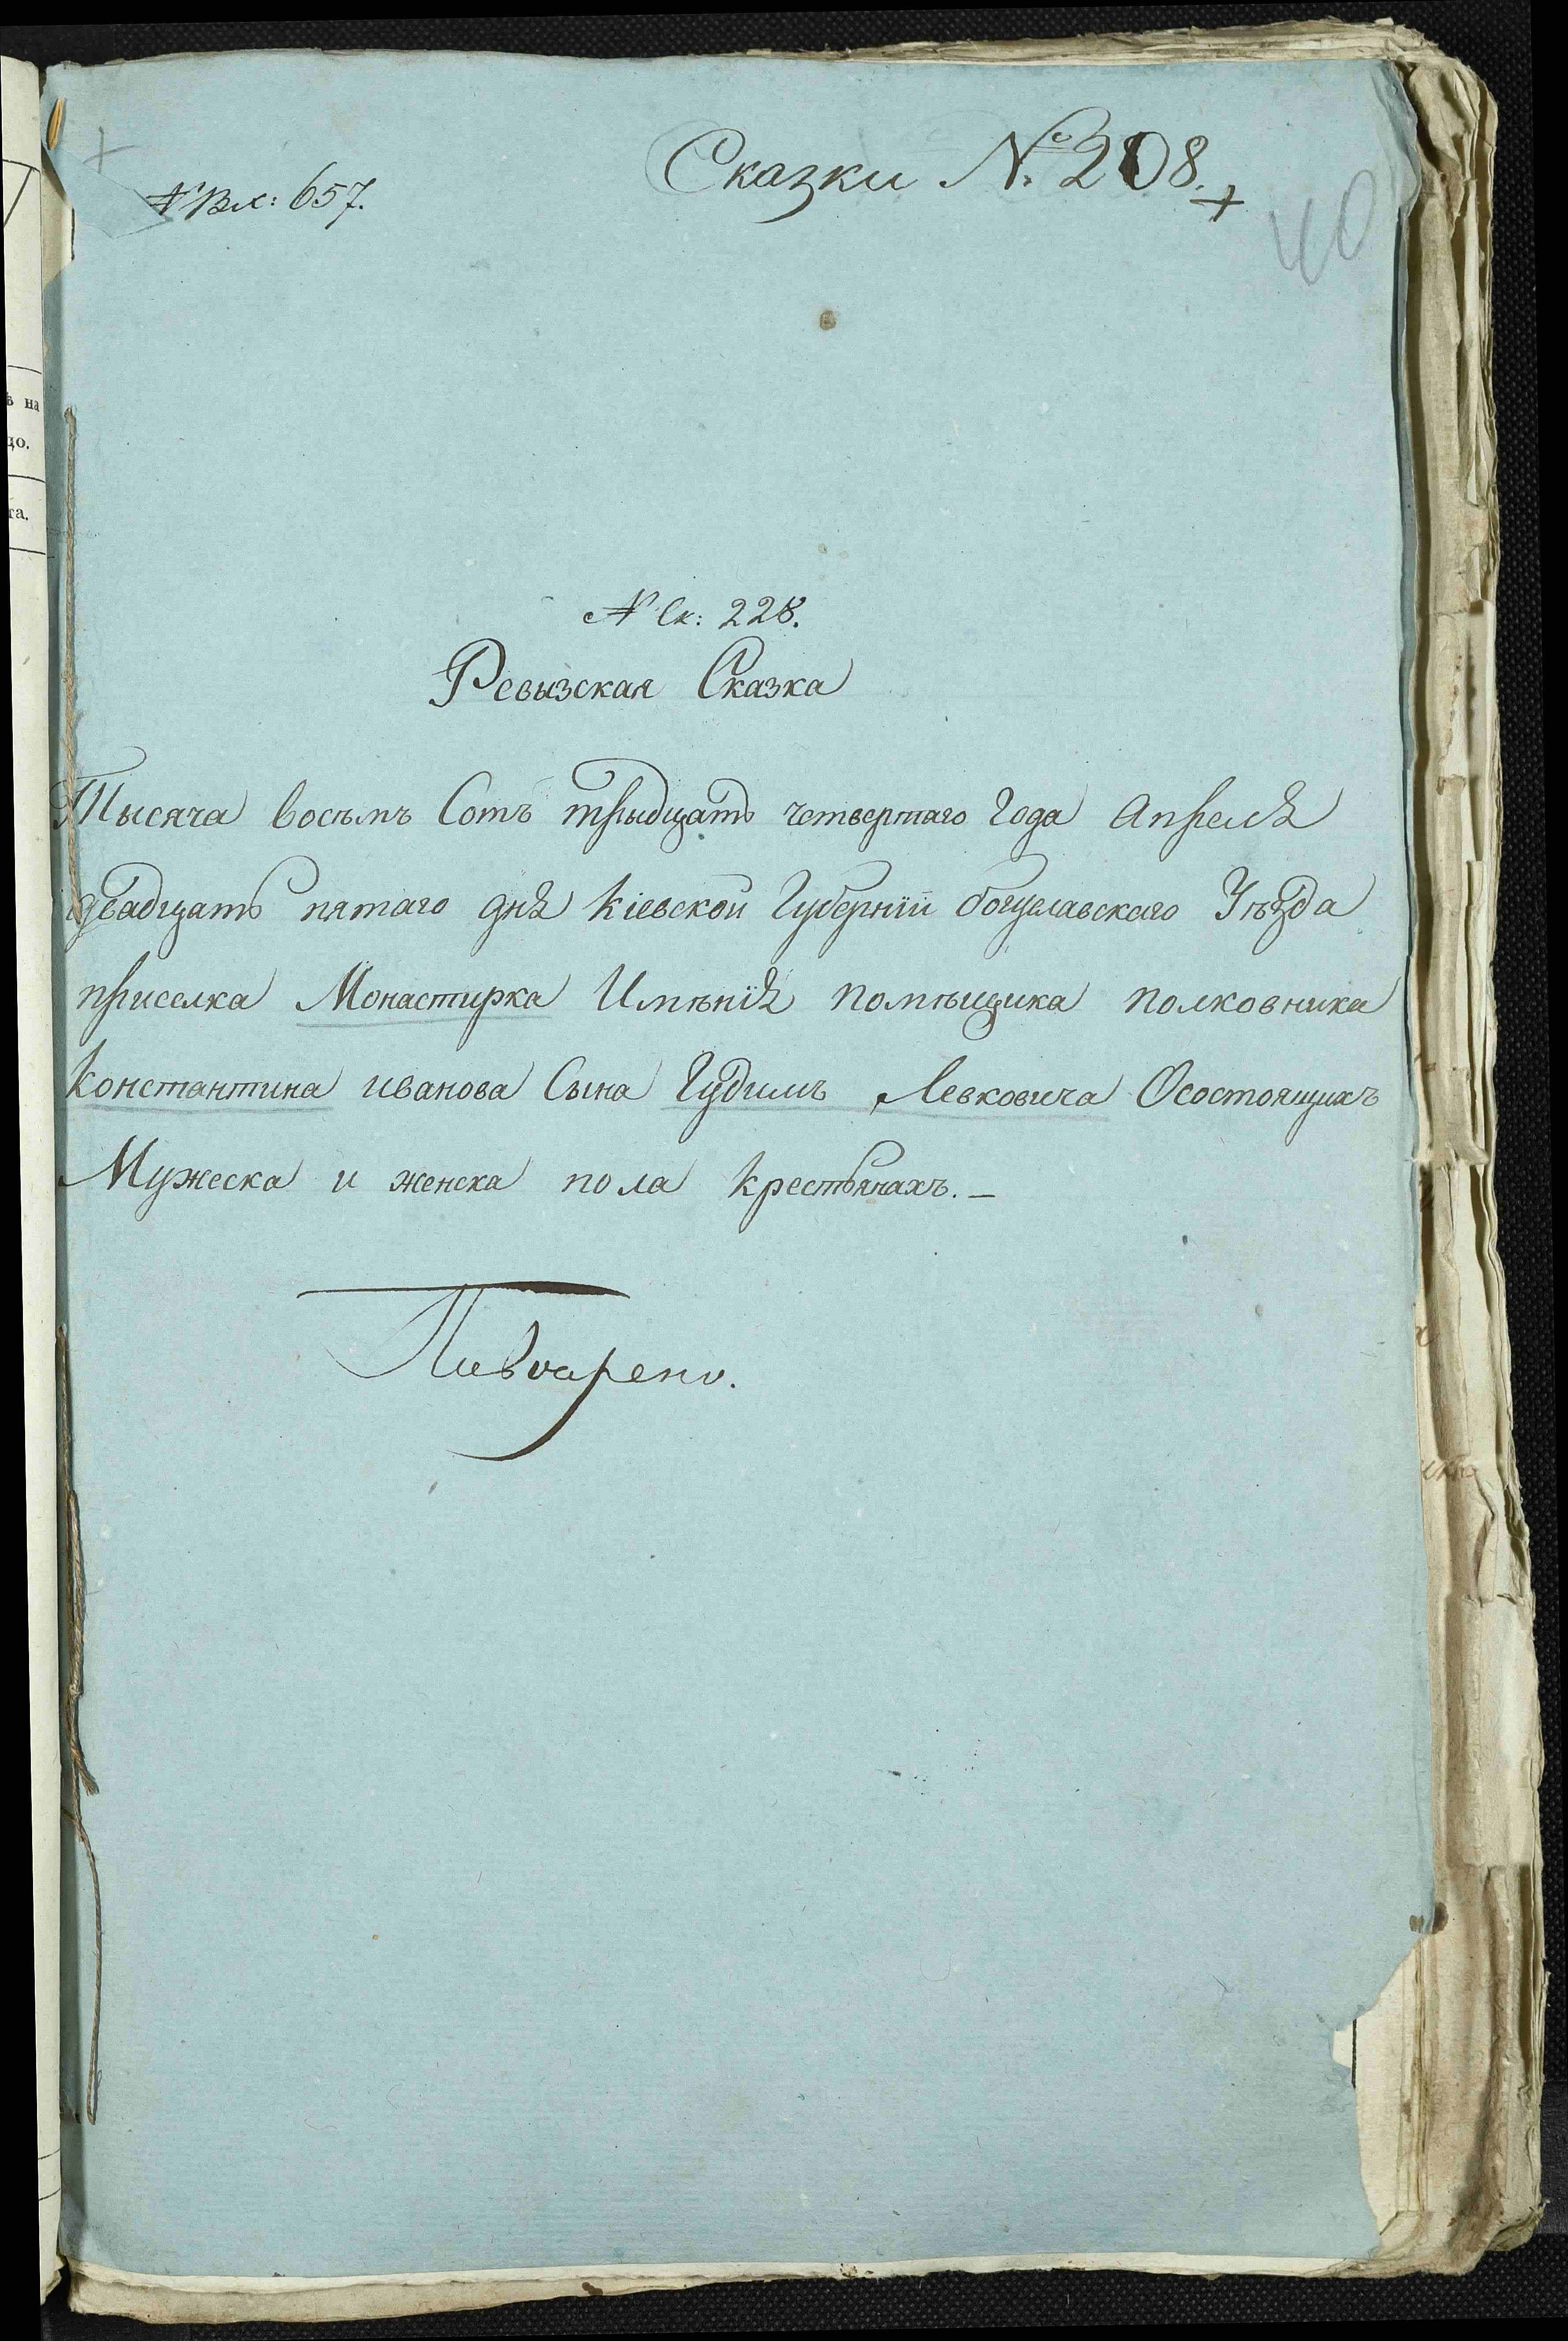 Сказки № 208.
№ Вх: 657.
40
№ Ск: 228.
Ревызская Сказка
Тысяча восъмъ Сотъ трыдцать четвертаго Года Апреля
двадцать пятаго дня Кіевской Губерніи богуславскаго Уѣзда
приселка Монастирка Имѣнія помѣщика полковника
Константина иванова Сына Гудимъ Левковича Осостоящихъ
Мужеска и женска пола крестьянахъ.
ѣ на
до.
та.